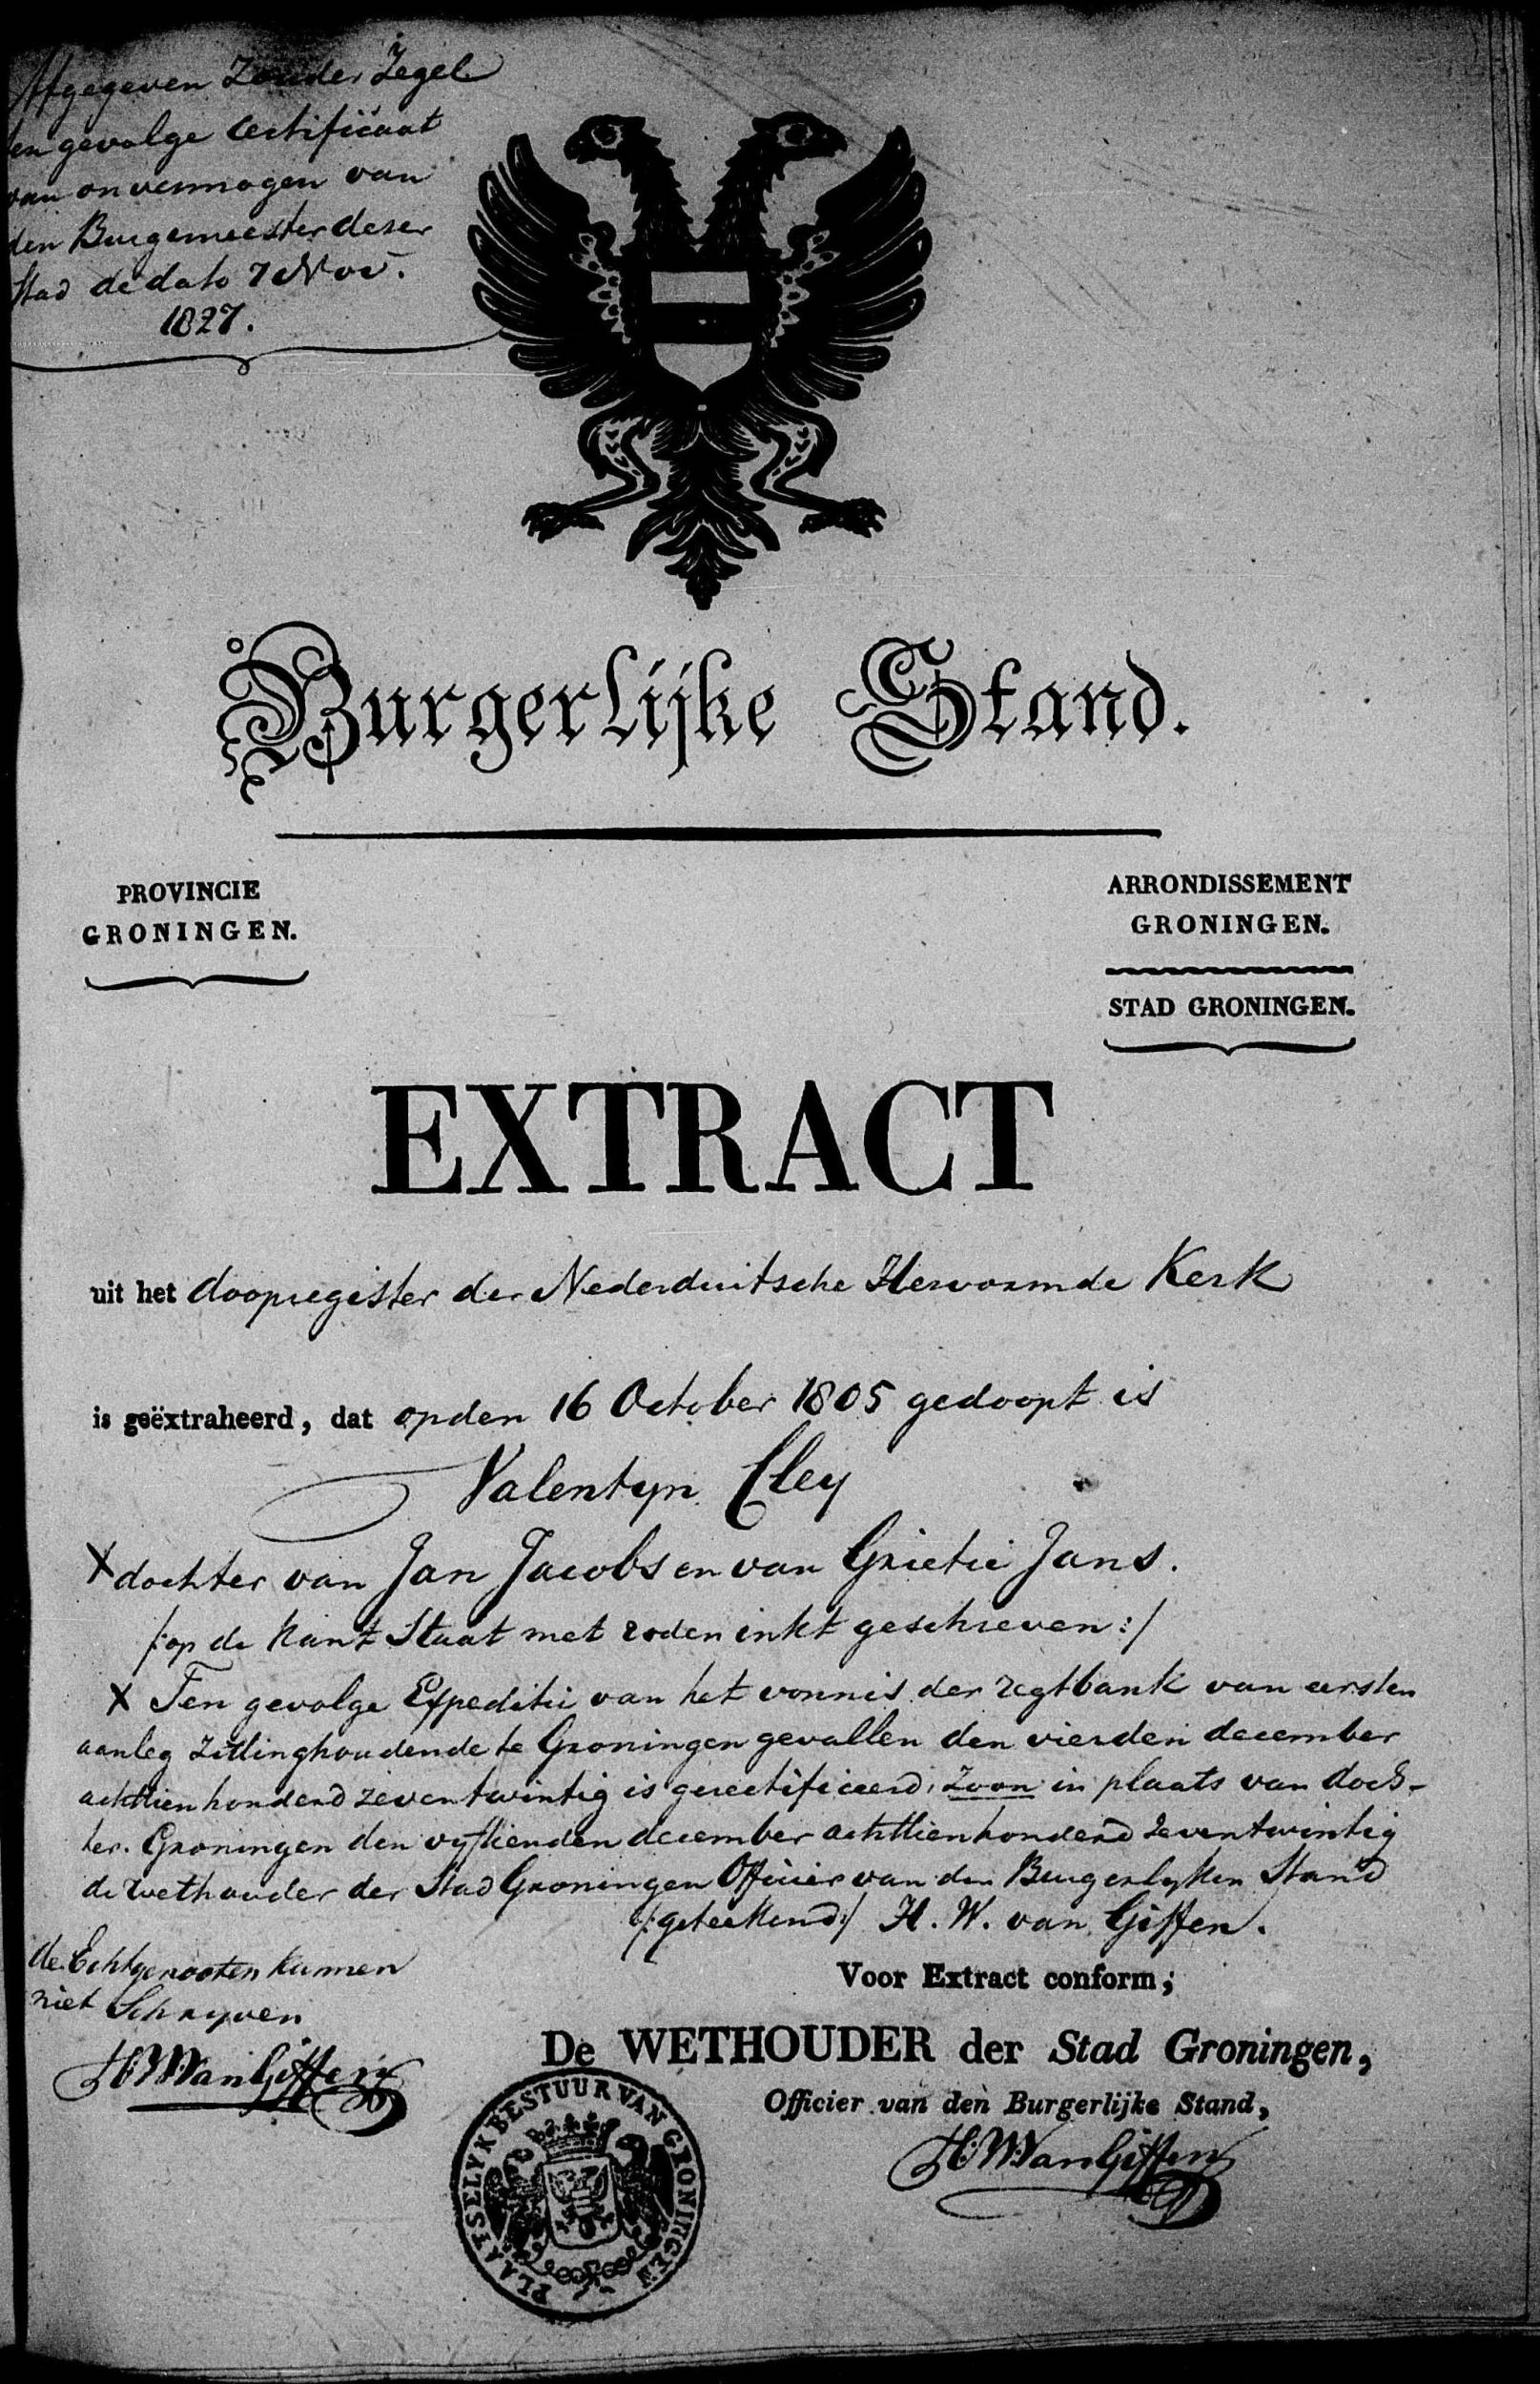 Afgegeven Zonder Zegel
ten gevolge Certificaat
van onvermogen van
den Burgemeester dezer
Stad de dato 7 Nov.
1827.
Burgerlijke Stand.
PROVINCIE
GRONINGEN.
ARRONDISSEMENT
GRONINGEN.
STAD GRONINGEN.
EXTRACT
uit het doopregister der Nederduitsche Hervormde Kerk
is geëxtraheerd, dat op den 16 October 1805 gedoopt is
Valentyn Cley
X dochter van Jan Jacobs en van Grietie Jans.
/:op de Kant Staat met roden inkt geschreven:/
X Ten gevolge Expeditie van het vonnis der regtbank van eersten
aanleg Zittinghoudende te Groningen gevallen den vierden december
achttienhonderd zeventwintig is gerectificeerd, zoon in plaats van doch-
ter. Groningen den vyftienden december achttienhonderd zeventwintig
de wethouder der Stad Groningen Officier van den Burgerlyken Stand
/:geteekend:/ H. W. van Giffen.
de Echtgenooten kunnen
niet Schryven
HW Van Giffen
Voor Extract conform;
De WETHOUDER der Stad Groningen,
Officier van den Burgerlijke Stand,
H:W:Van Giffen
PLAATSELYK BESTUUR VAN GRONINGEN